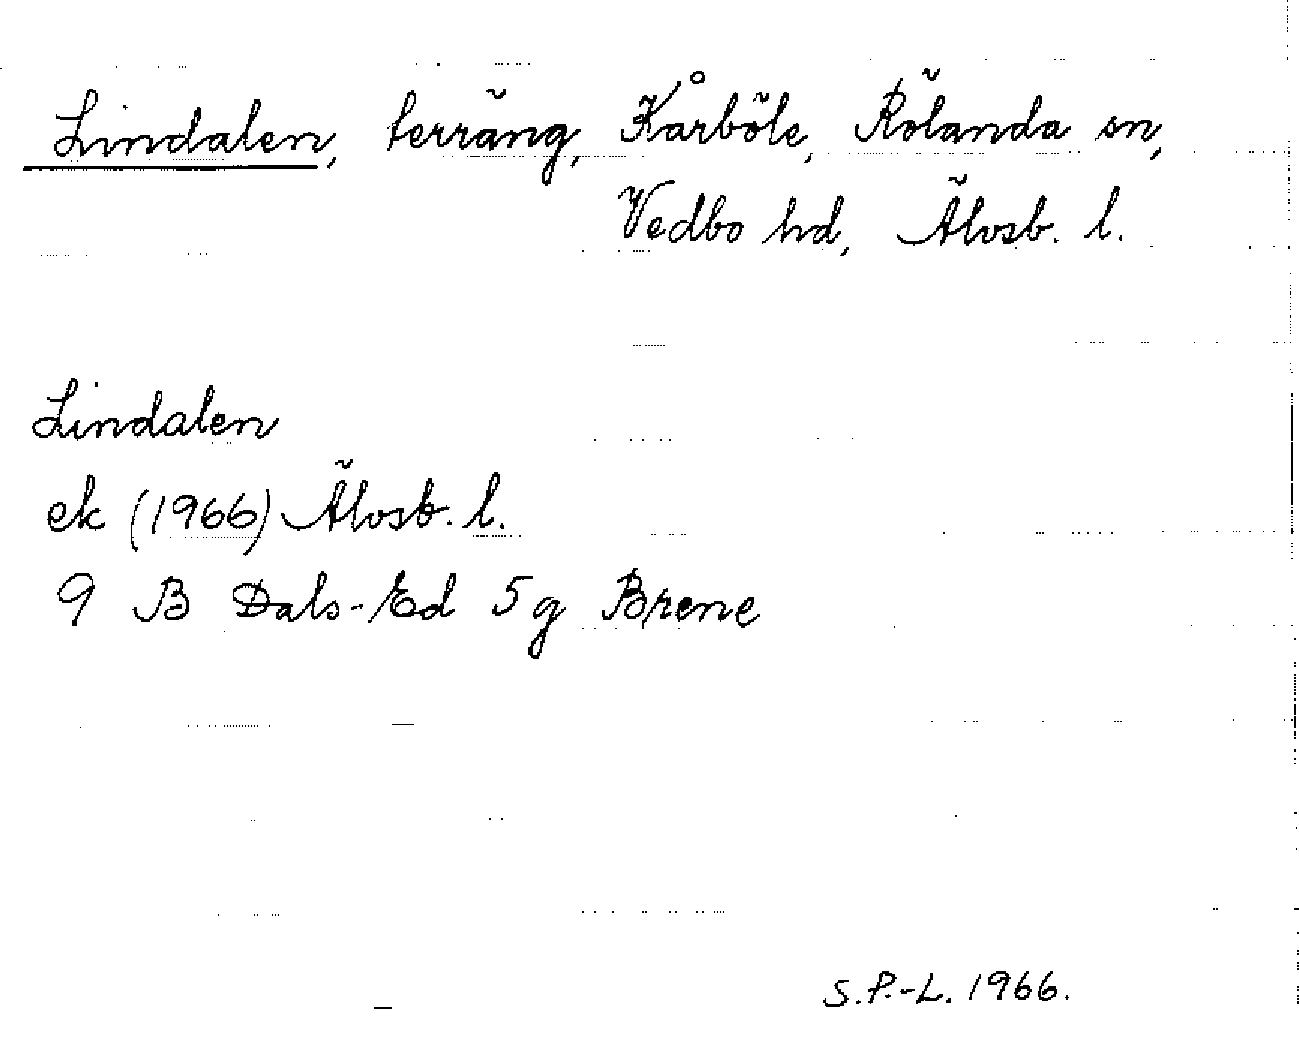 Lindalen, terräng, Kårböle, Rölanda sn,
Vedbo hd, Älvsb. l.
Lindalen
ek (1966) Älvsb. l.
9 B Dals-Ed 5 g Brene
S.P.-L. 1966.